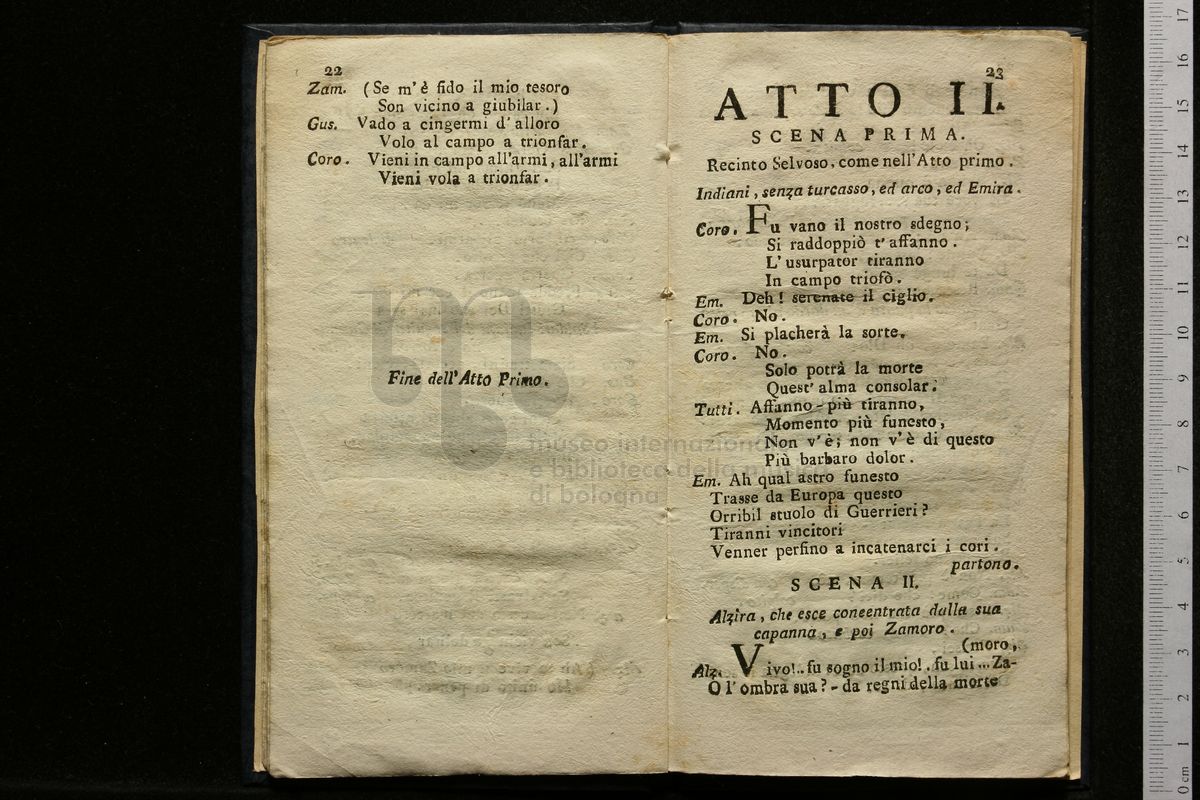 22
Zam. (Se m'è fido il mio tesoro
Son vicino a giubilar.)
Gus. Vado a cingermi d'alloro
Volo al campo a trionfar.
Coro. Vieni in campo all'armi, all'armi
Vieni vola a trionfar.
Fine dell'Atto Primo.
23
ATTO II.
SCENA PRIMA.
Recinto Selvoso, come nell'Atto primo.
Indiani, senza turcasso, ed arco, ed Emira.
Coro. Fu vano il nostro sdegno;
Si raddoppiò t'affanno.
L'usurpator tiranno
In campo triofò.
Em. Deh! serenate il ciglio.
Coro. No.
Em. Si placherà la sorte.
Coro. No.
Solo potrà la morte
Quest'alma consolar.
Tutti. Affanno - più tiranno,
Momento più funesto,
Non v'è; non v'è di questo
Più barbaro dolor.
Em. Ah qual astro funesto
Trasse da Europa questo
Orribil stuolo di Guerrieri?
Tiranni vincitori
Venner perfino a incatenarci i cori.
partono.
SCENA II.
Alzira, che esce coneentrata dalla sua
capanna, e poi Zamoro.
(moro,
Alz. Vivo!..fu sogno il mio!.fu lui...Za-
O l'ombra sua? - da regni della morte
museo internazionale
e biblioteca della musica
di bologna
0 cm 1 2 3 4 5 6 7 8 9 10 11 12 13 14 15 16 17